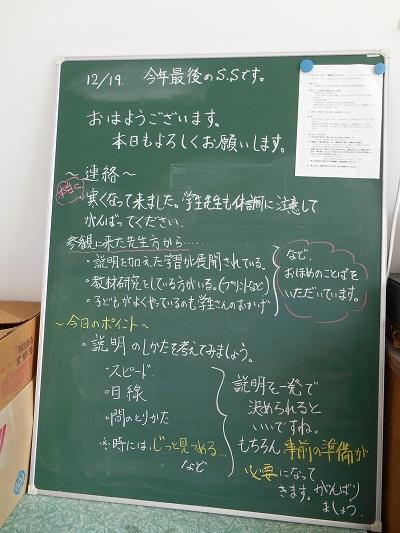 12/19 今年最後のS.Sです。
おはようございます。
本日もよろしくお願いします。
～連絡～
本当に
寒くなって来ました。学生先生も体調に注意して
がんばってください。
参観に来た先生方から……
・説明を加えた学習が展開されている。
・教材研究をしている方がいる。(プリントなど)
・子どもがよくやっているのも学生さんのおかげ
など、
おほめのことばを
いただいています。
～今日のポイント～
・説明のしかたを考えてみましょう。
・スピード
・目線
・間のとりかた
※時には、じっと見つめる…
など
説明を一発で
決められると
いいですね。
もちろん事前の準備が
必要になって
きます。がんばり
ましょう。